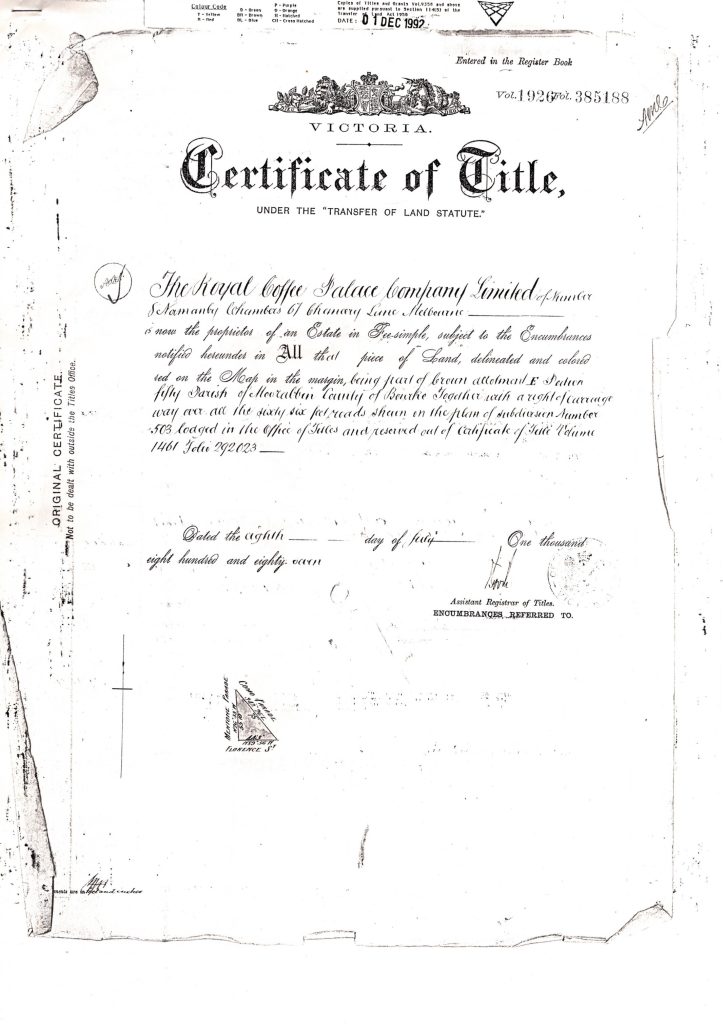 Colour Code
Y - Yellow
R - Red
G - Green
BR - Brown
BL - Blue
P - Purple
O - Orange
H - Hatched
CH - Cross Hatched
Copies of Titles and Grants Vol.9350 and above
are supplied pursuant to Section 114(5) of the
Transfer of Land Act 1958
DATE: 01 DEC 1992
Entered in the Register Book
Vol. 1926 Fol. 385188
VICTORIA.
Certificate of Title,
UNDER THE "TRANSFER OF LAND STATUTE."
The Royal Coffee Palace Company Limited of Number
8 Chambers 67 Chancery Lane Melbourne
is now the proprietor of an Estate in Fee-simple, subject to the Encumbrances
notified hereunder in All that piece of Land, delineated and colored
red on the Map in the margin, being part of Crown allotment E Section
fifty Parish of Moorabbin County of Bourke Together with a right of carriage
way over all the sixty six feet roads shewn on the plan of subdivision Number
503 lodged in the Office of Titles and reserved out of Certificate of Title Volume
1461 Folio 292023
Dated the eighth day of July One thousand
eight hundred and eighty seven
Assistant Registrar of Titles.
ENCUMBRANCES REFERRED TO.
ORIGINAL CERTIFICATE.
Not to be dealt with outside the Titles Office.
MENTONE PARADE
COMO PARADE
FLORENCE ST